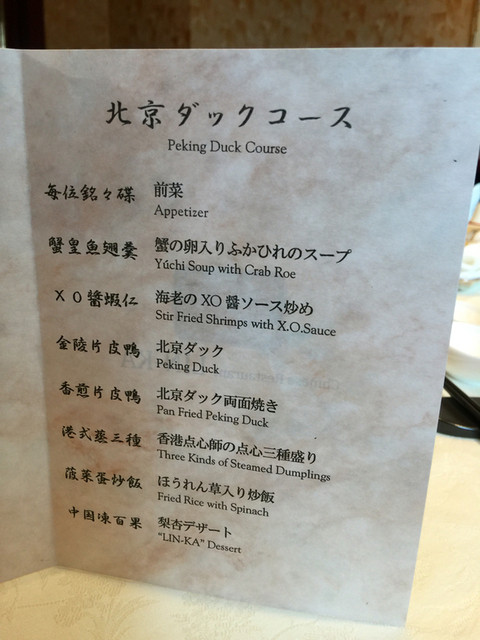 北京ダックコース
Peking Duck Course
毎位銘々碟 前菜
Appetizer
蟹皇魚翅羹 蟹の卵入りふかひれのスープ
Yúchi Soup with Crab Roe
XO醬蝦仁 海老のXO醤ソース炒め
Stir Fried Shrimps with X.O.Sauce
金陵片皮鴨 北京ダック
Peking Duck
香煎片皮鴨 北京ダック両面焼き
Pan Fried Peking Duck
港式蒸三種 香港点心師の点心三種盛り
Three Kinds of Steamed Dumplings
菠菜蛋炒飯 ほうれん草入り炒飯
Fried Rice with Spinach
中国凍百果 梨杏デザート
"LIN-KA" Dessert